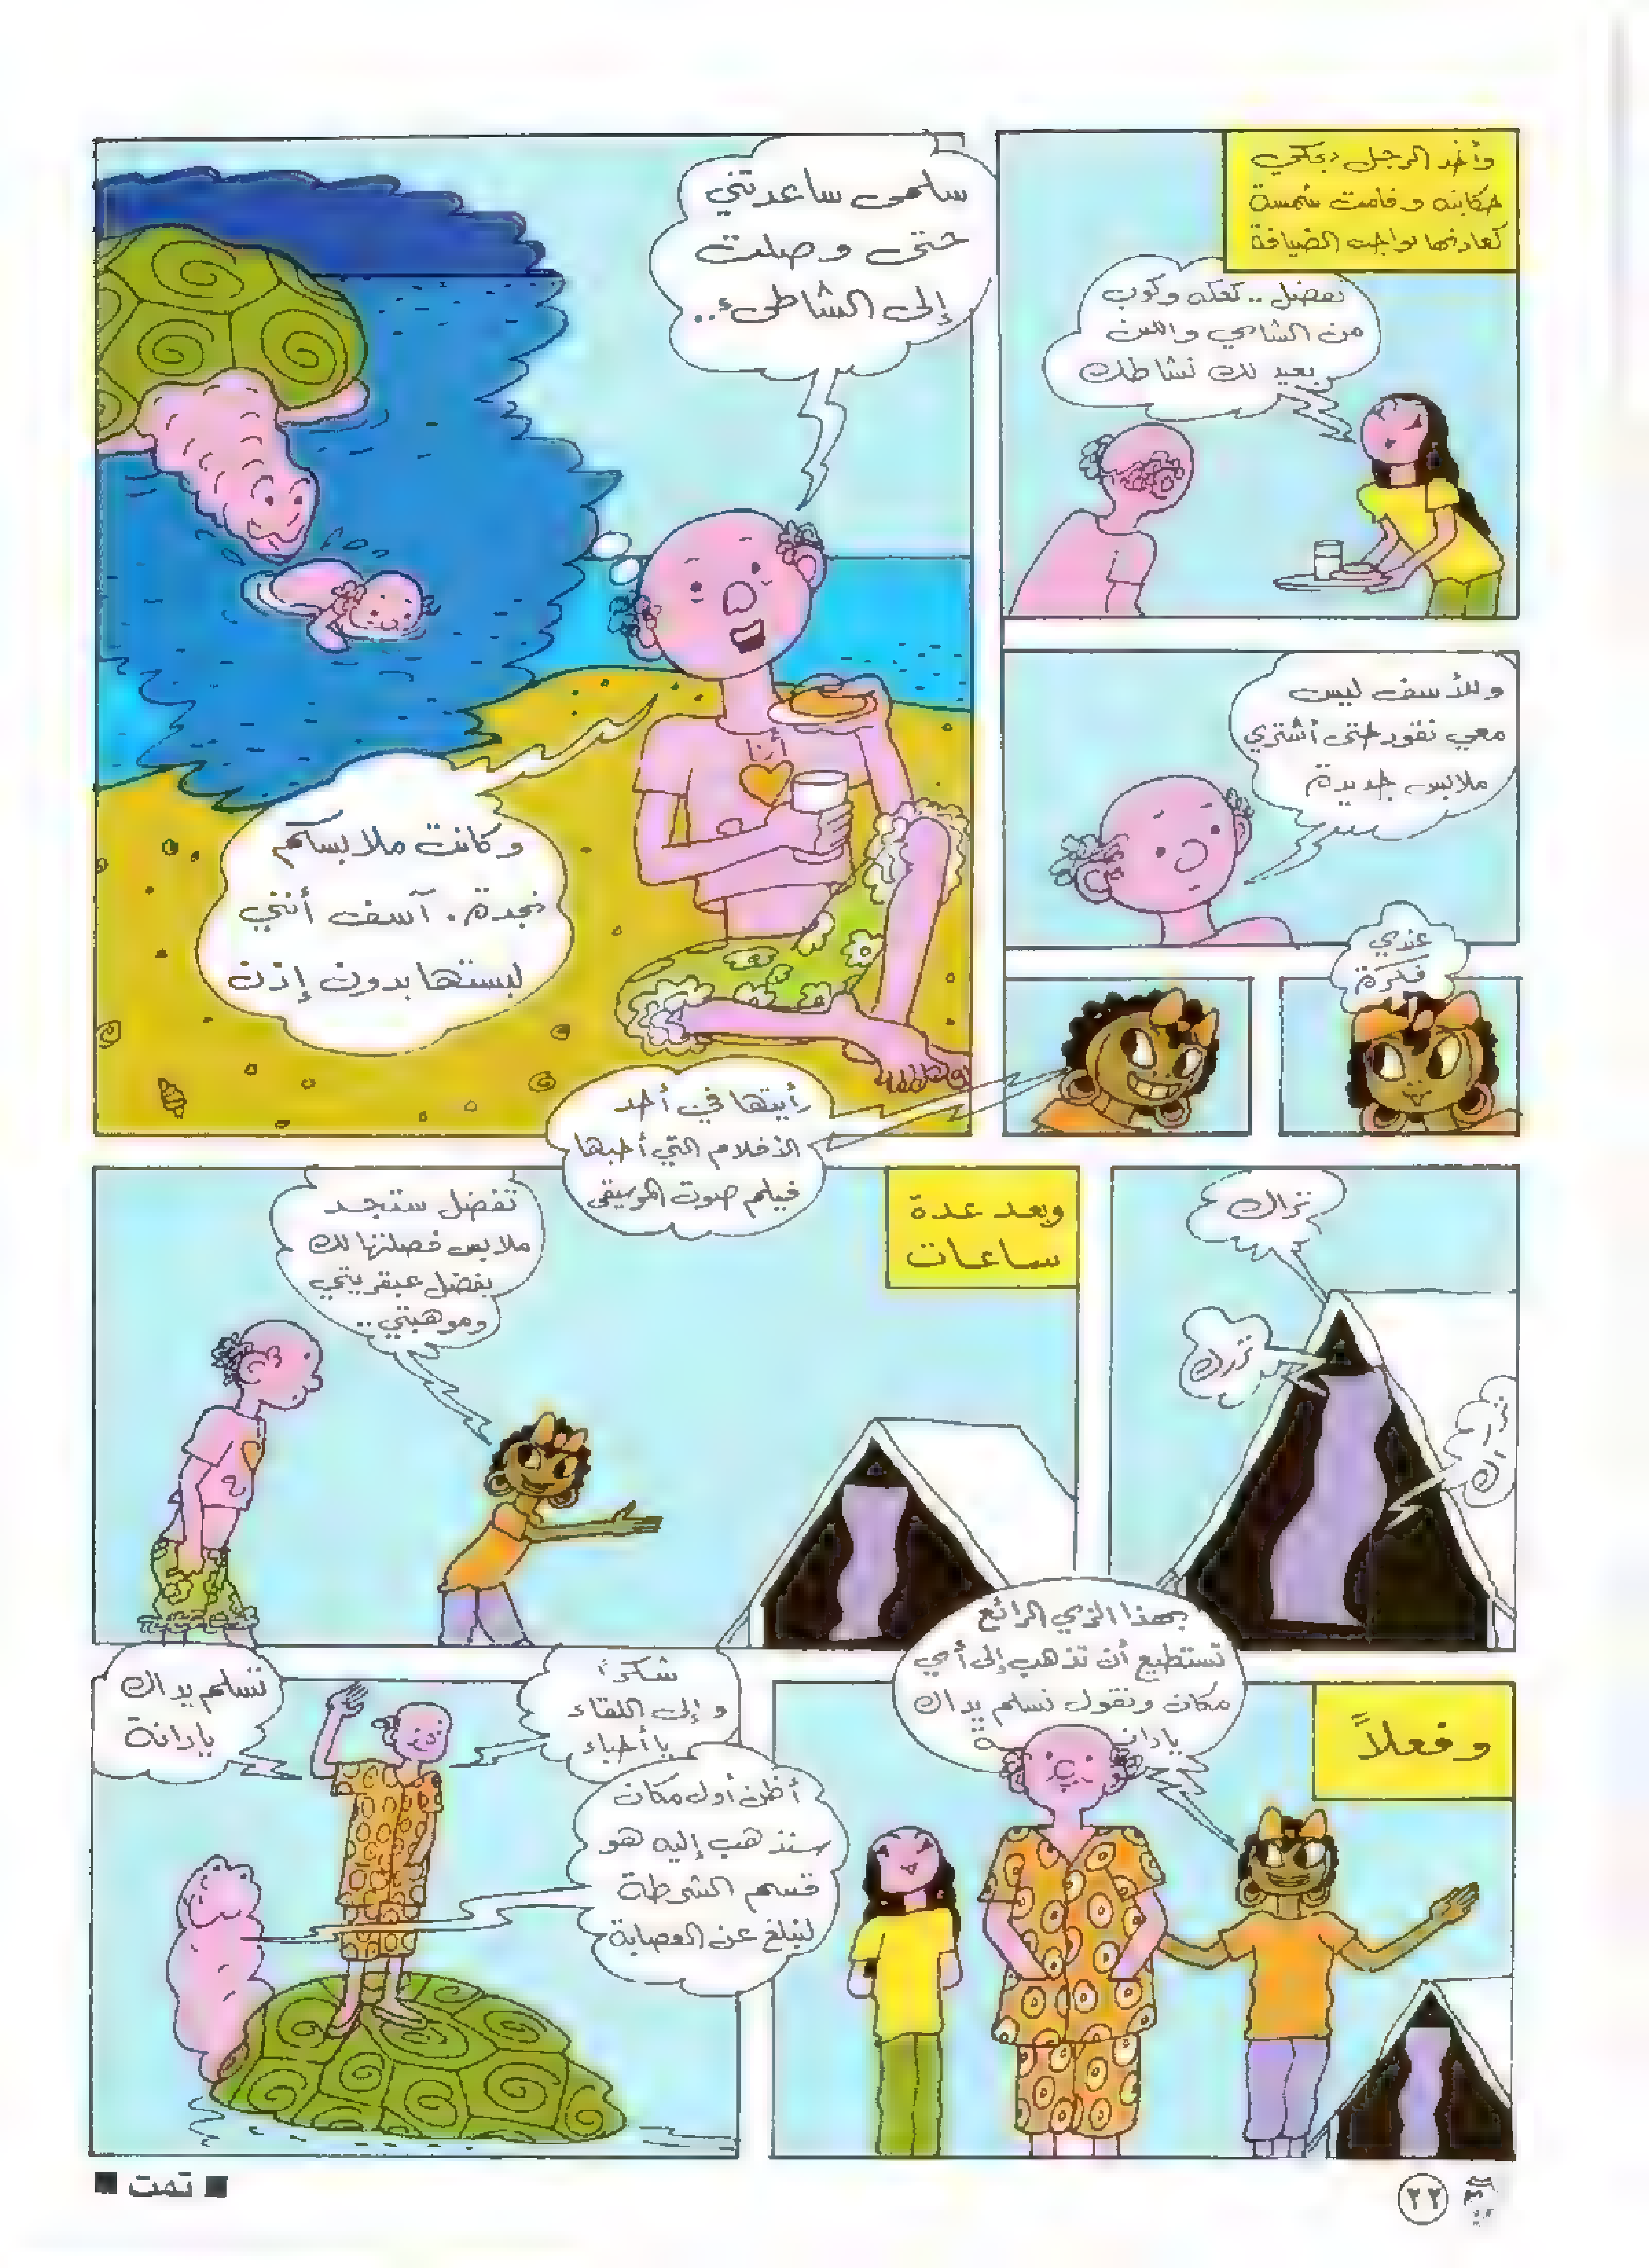 وأخذ الرجل يحكي
حكايته وقامت شمسة
كعادتها بواجب الضيافة
تفضل .. كعكه وكوب
من الشاي واللبن
يعيد لك نشاطك
سلمى ساعدتني
حتى وصلت
إلى الشاطىء..
أنا
وكانت ملابسكم
نجدة . آسف أنني
لبستها بدون إذن
وللأسف ليس
معي نقود حتى أشتري
ملابس جديدة
عندي
فكرة
رأيتها في أحد
الأفلام التي أحبها
فيلم صوت الموسيقى
تراك
ترك
تراك
وبعد عدة
ساعات
تفضل ستجد
ملابس فصلتها لك
بفضل عبقريتي
وموهبتي ..
وفعلاً
بهذا الزي الرائع
تستطيع أن تذهب إلى أي
مكان وتقول تسلم يداك
يادانة
شكراً
و إلى اللقاء
يا أحباء
تسلم يداك
يادانة
أظن أول مكان
سنذهب إليه هو
قسم الشرطة
لنبلغ عن العصابة
تمت
٢٢